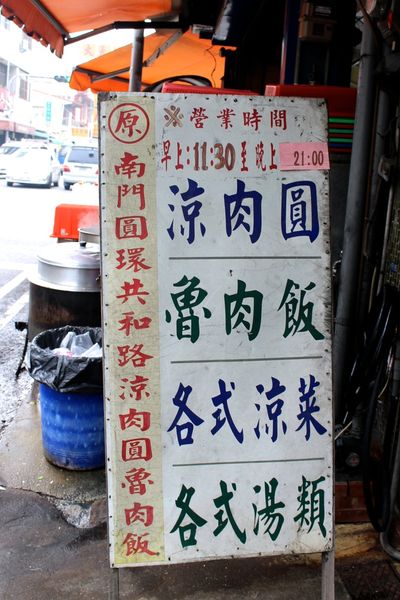 原
南門圓環共和路涼肉圓魯肉飯
※營業時間
早上:11:30至晚上 21:00
涼肉圓
魯肉飯
各式涼菜
各式湯類